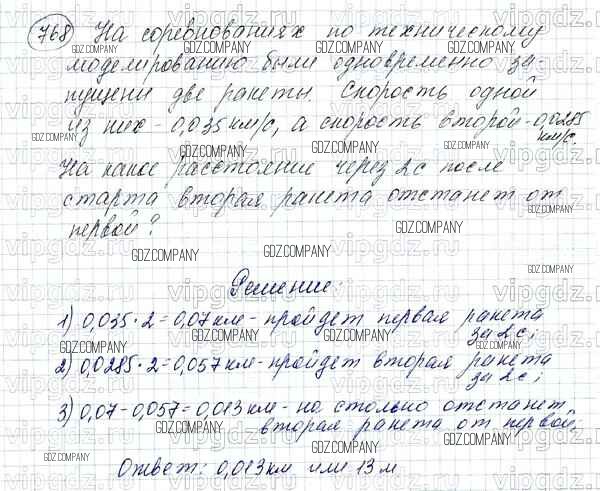 768 На соревнованиях по техническому
моделированию были одновременно за-
пущены две ракеты. Скорость одной
из них - 0,035 км/с, а скорость второй - 0,0285
км/с.
На какое расстояние через 2 с после
старта вторая ракета отстанет от
первой?
Решение:
1) 0,035 · 2 = 0,07 км - пройдет первая ракета
за 2 с;
2) 0,0285 · 2 = 0,057 км - пройдет вторая ракета
за 2 с;
3) 0,07 - 0,057 = 0,013 км - на столько отстанет
вторая ракета от первой.
Ответ: 0,013 км или 13 м
GDZ.COMPANY
vipgdz.ru